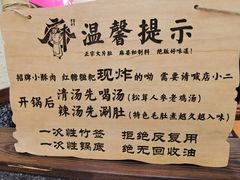 麻
温馨提示
正宗大片肚 麻婆私制料 绝版好味道!
招牌小酥肉 红糖糍粑现炸的呦 需要请喊店小二
开锅后清汤先喝汤(松茸人参老鸡汤)
辣汤先涮肚(特色毛肚煮越久越入味)
一次性竹签 拒绝反复用
一次性锅底 绝无回收油